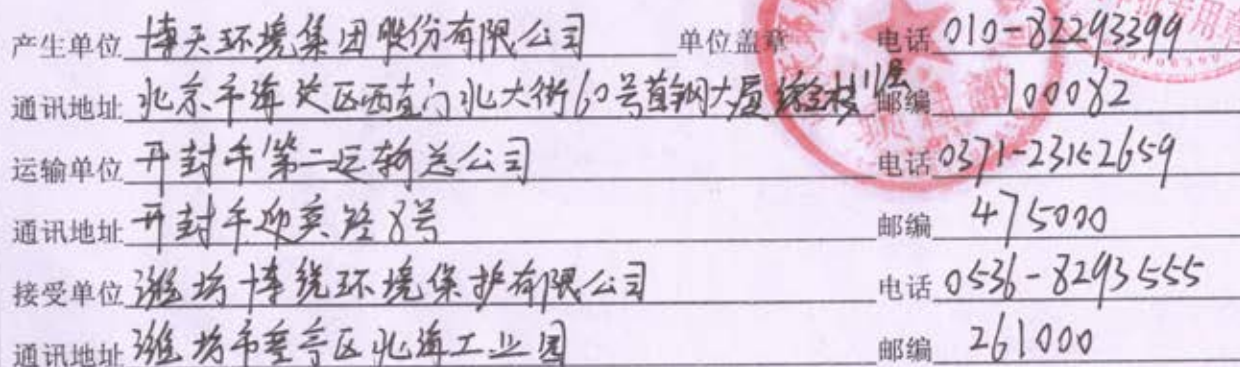 产生单位 博天环境集团股份有限公司 单位盖章 电话 010-82293399
通讯地址 北京市海淀区西直门北大街60号首钢大厦综合楼11层 邮编 100082
运输单位 开封市第二运输总公司 电话 0371-23152659
通讯地址 开封市迎宾路8号 邮编 475000
接受单位 潍坊博锐环境保护有限公司 电话 0536-8293555
通讯地址 潍坊市奎文区北海工业园 邮编 261000